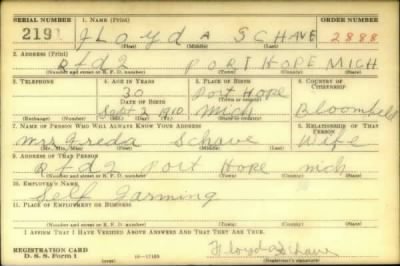 SERIAL NUMBER 1. NAME (Print) ORDER NUMBER
219 Floyd A SCHAVE 2888
(First) (Middle) (Last)
2. ADDRESS (Print)
Rfd 2 PORT HOPE MICH
(Number and street or R. F. D. number) (Town) (County) (State)
3. TELEPHONE 4. AGE IN YEARS 5. PLACE OF BIRTH 6. COUNTRY OF CITIZENSHIP
30 Port Hope
DATE OF BIRTH
Sept 3 1910 Mich Bloomfield
(Exchange) (Number) (Mo.) (Day) (Yr.) (State or country)
7. NAME OF PERSON WHO WILL ALWAYS KNOW YOUR ADDRESS 8. RELATIONSHIP OF THAT PERSON
Mrs Freda Schave Wife
(Mr., Mrs., Miss) (First) (Middle) (Last)
9. ADDRESS OF THAT PERSON
Rfd 2 Port Hope Mich
(Number and street or R. F. D. number) (Town) (County) (State)
10. EMPLOYER'S NAME
Self Farming
11. PLACE OF EMPLOYMENT OR BUSINESS
(Number and street or R. F. D. number) (Town) (County) (State)
I AFFIRM THAT I HAVE VERIFIED ABOVE ANSWERS AND THAT THEY ARE TRUE.
REGISTRATION CARD
D. S. S. Form 1 16—17105 Floyd A Schave